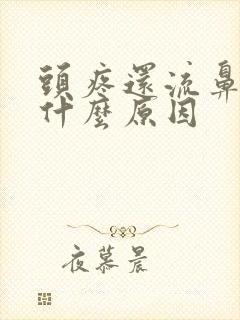 頭疼還流鼻
什麼原因
夜慕晨